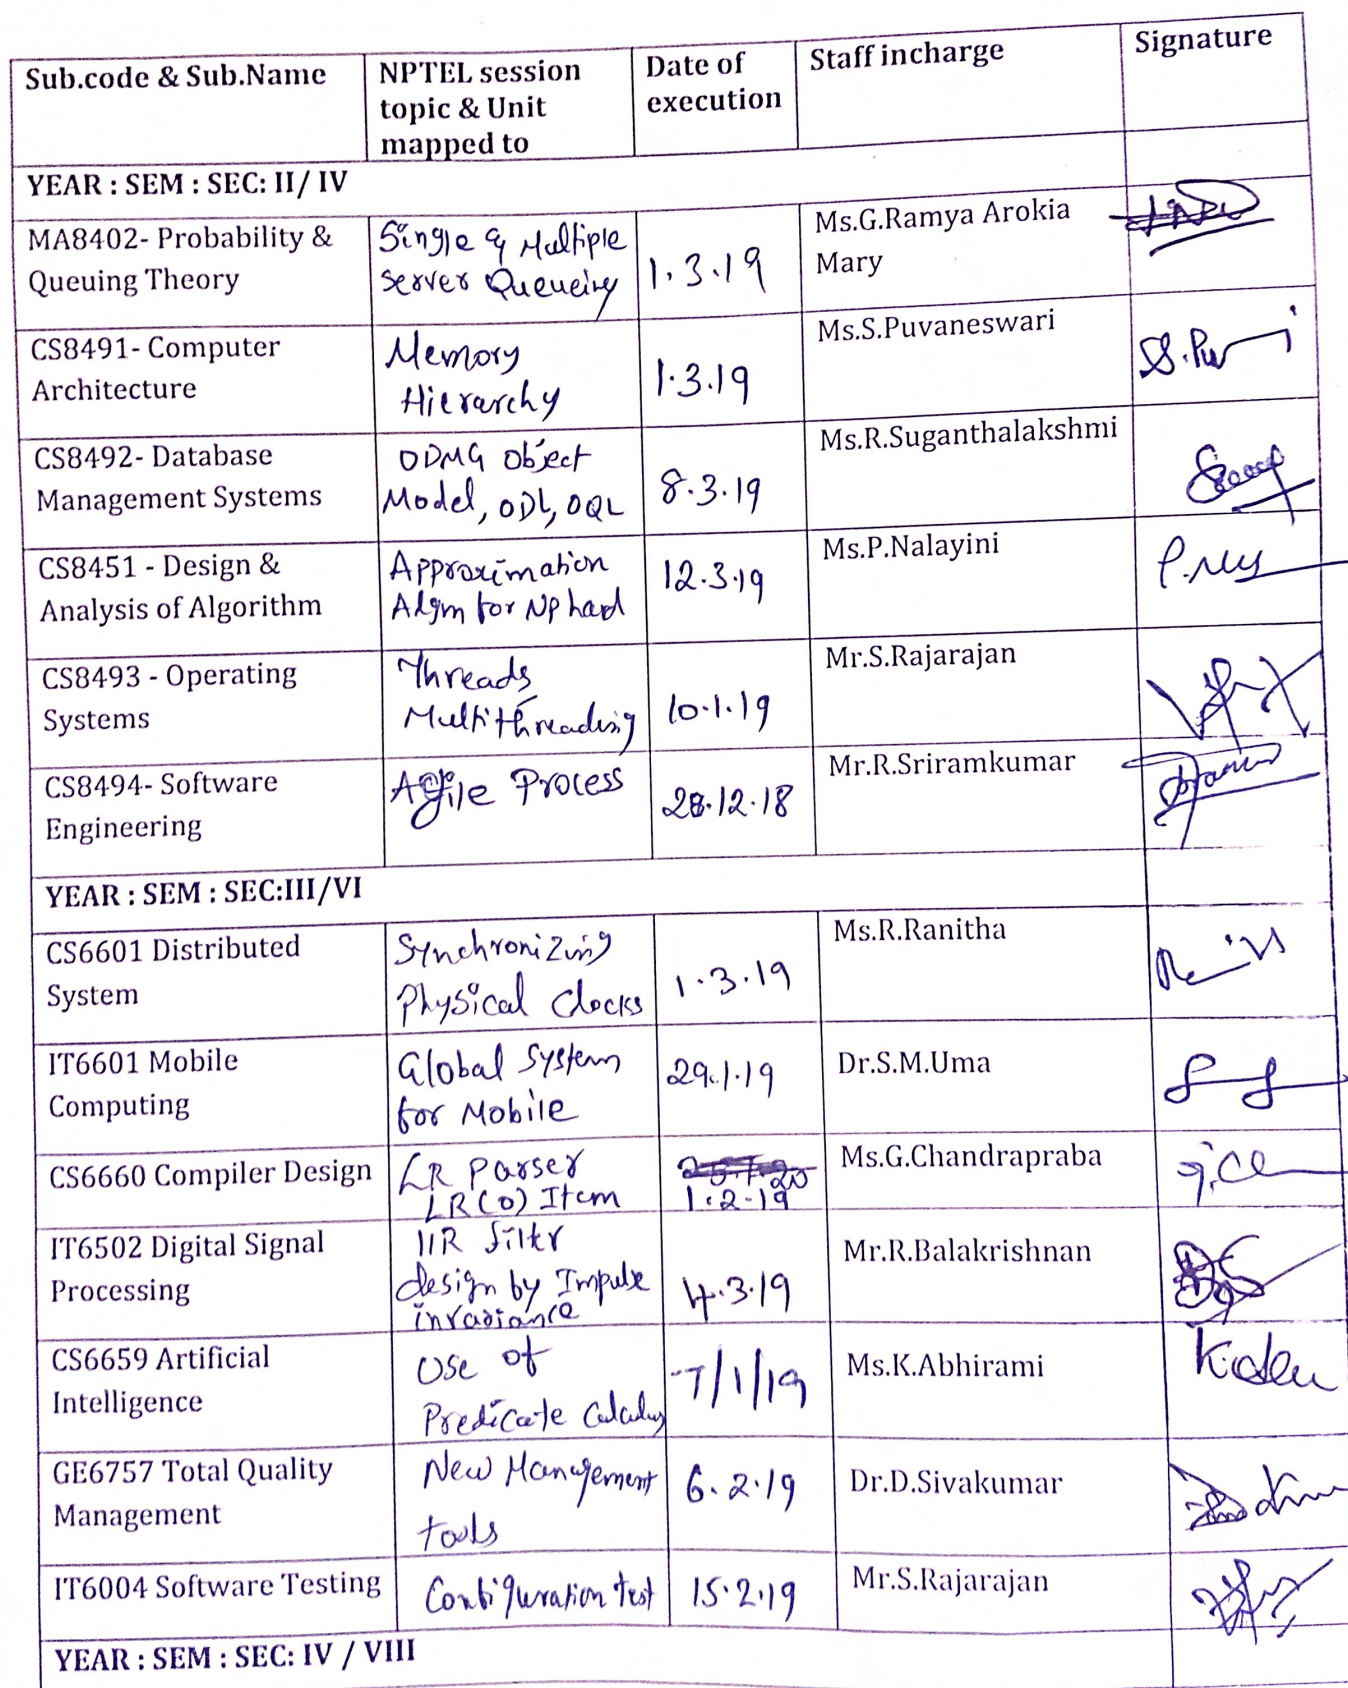 Sub.code & Sub.Name
NPTEL session
topic & Unit
mapped to
Date of
execution
Staff incharge
Signature
YEAR : SEM : SEC: II/ IV
MA8402- Probability &
Queuing Theory
Single & Multiple
server Queueing
1.3.19
Ms.G.Ramya Arokia
Mary
CS8491- Computer
Architecture
Memory
Hierarchy
1.3.19
Ms.S.Puvaneswari
CS8492- Database
Management Systems
ODMG Object
Model, ODL, OQL
8.3.19
Ms.R.Suganthalakshmi
CS8451 - Design &
Analysis of Algorithm
Approximation
Algm for NP hard
12.3.19
Ms.P.Nalayini
CS8493 - Operating
Systems
Threads
Multithreading
10.1.19
Mr.S.Rajarajan
CS8494- Software
Engineering
Agile Process
28.12.18
Mr.R.Sriramkumar
YEAR : SEM : SEC:III/VI
CS6601 Distributed
System
Synchronizing
Physical Clocks
1.3.19
Ms.R.Ranitha
IT6601 Mobile
Computing
Global System
for Mobile
29.1.19
Dr.S.M.Uma
CS6660 Compiler Design
LR Parser
LR(0) Item
1.2.19
Ms.G.Chandrapraba
IT6502 Digital Signal
Processing
IIR filter
design by Impulse
invariance
4.3.19
Mr.R.Balakrishnan
CS6659 Artificial
Intelligence
Use of
Predicate Calculus
7/1/19
Ms.K.Abhirami
GE6757 Total Quality
Management
New Management
tools
6.2.19
Dr.D.Sivakumar
IT6004 Software Testing
Configuration test
15.2.19
Mr.S.Rajarajan
YEAR : SEM : SEC: IV / VIII